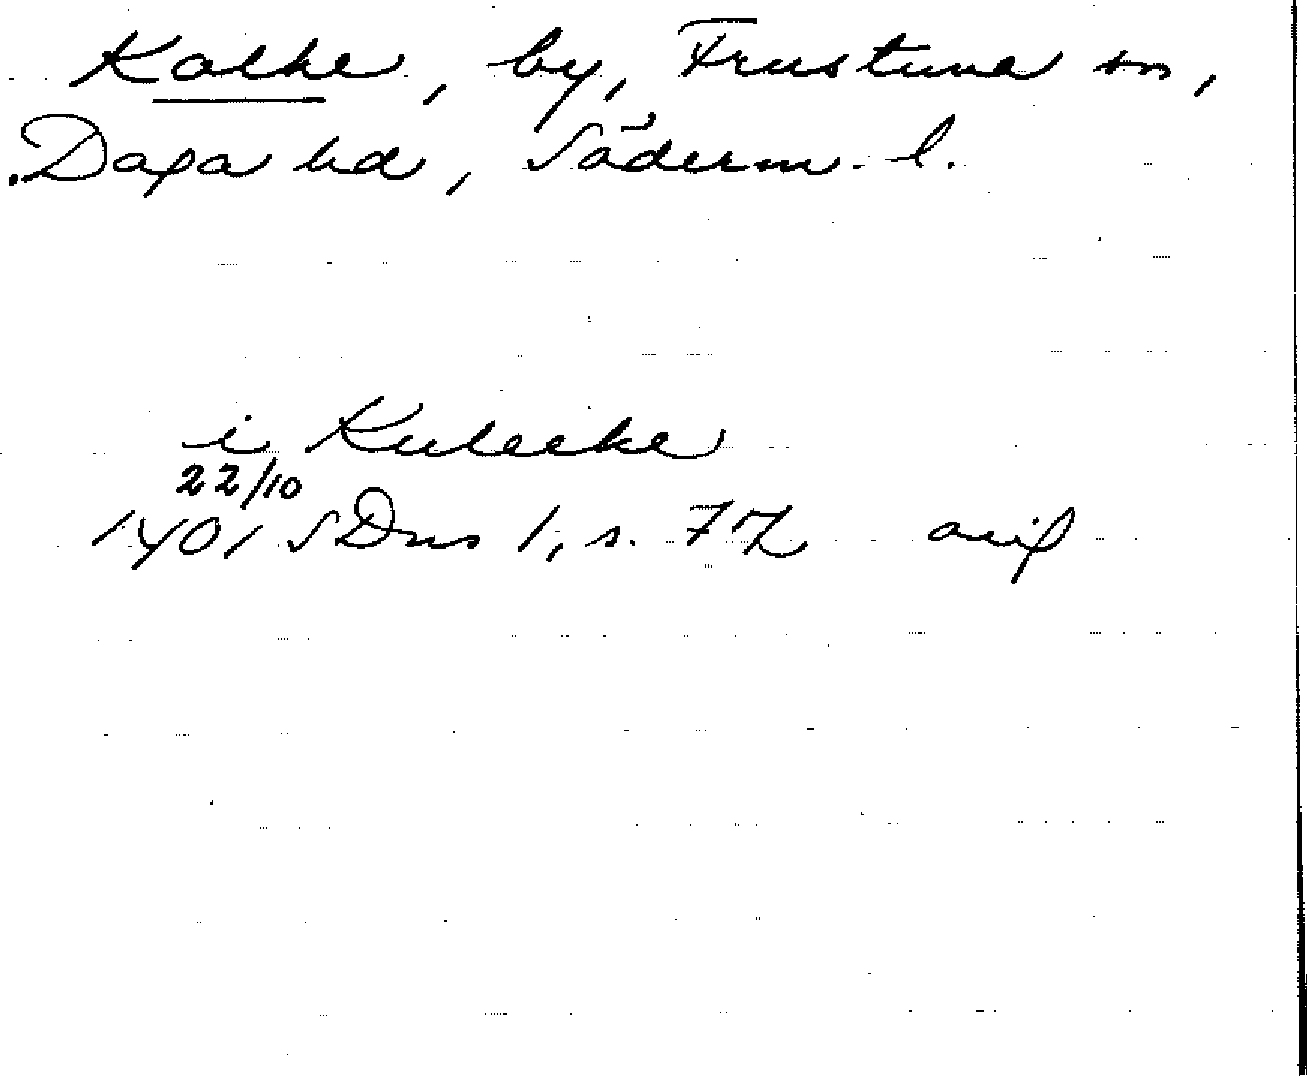 Kalke, by, Frustuna sn,
Daga hd, Söderm. l.
i Kulecke
22/10
1401 SDns 1, s. 72 avif